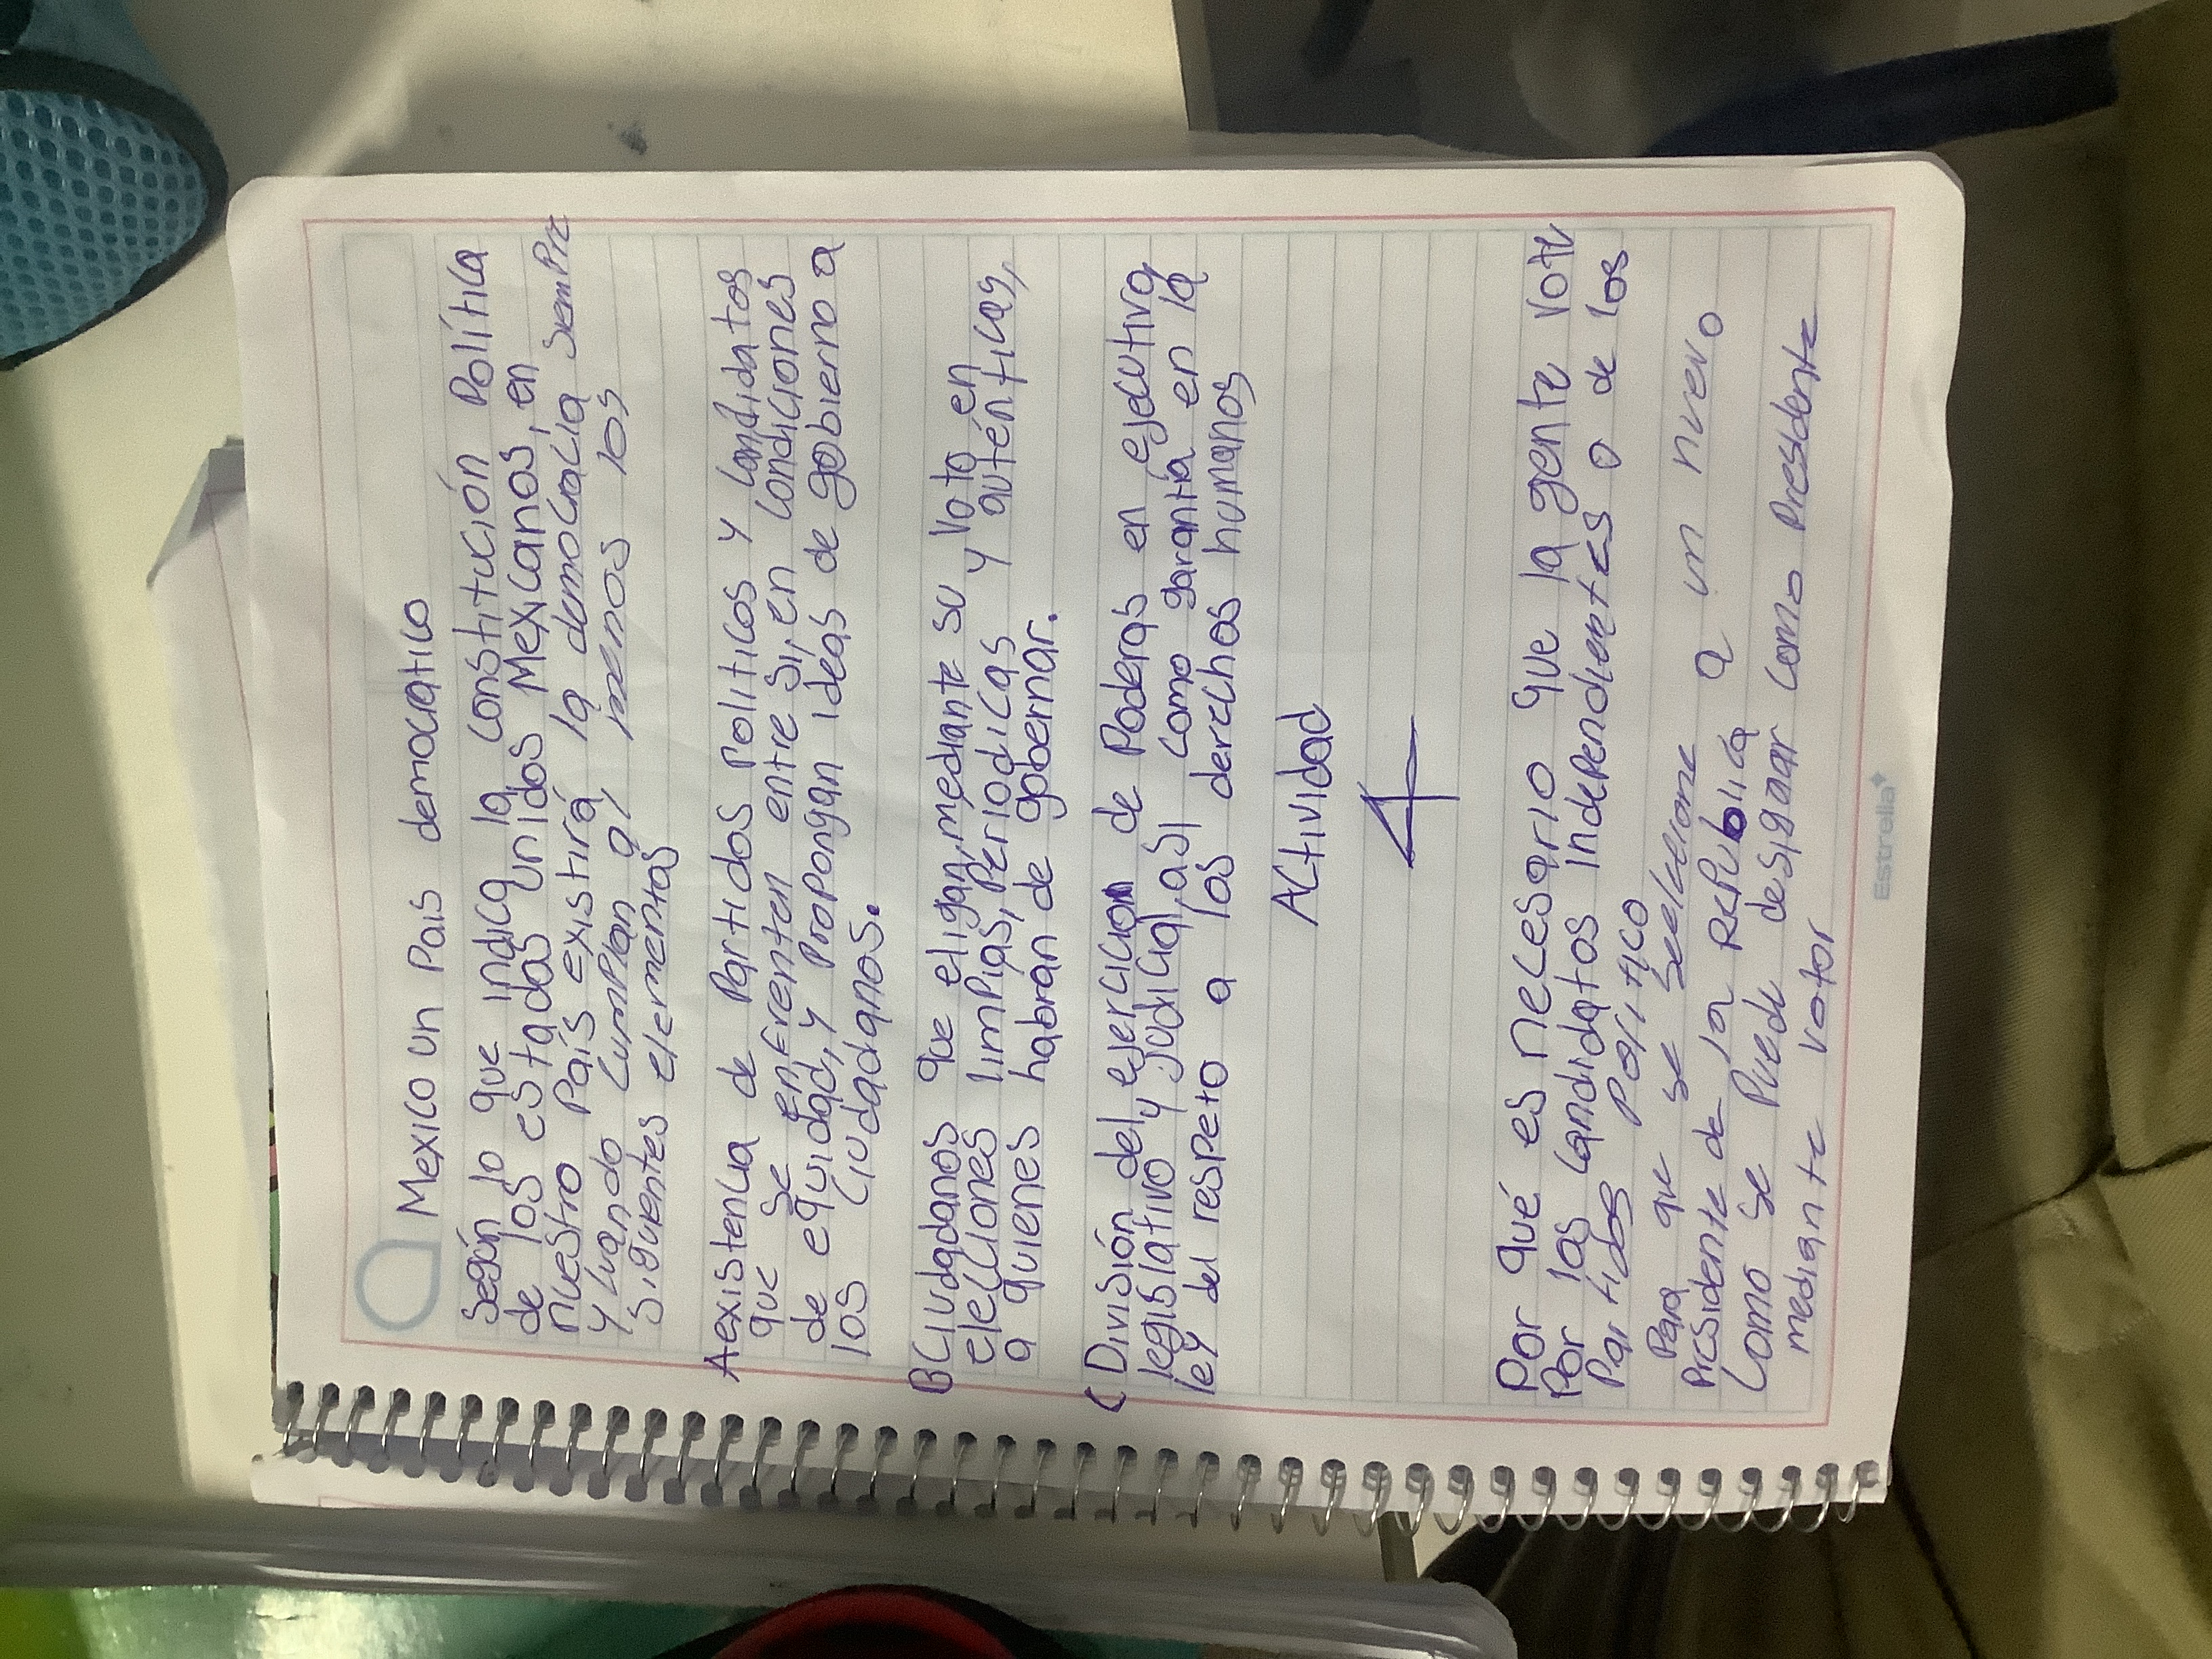 Mexico un Pais democratico
según lo que indica la constitución Política
de los estados unidos Mexicanos, en
nuestro País existirá la democracia semPre
y cuando cumPlan al menos los
siguentes elementos
A existencia de Partidos Politicos y candidatos
que se enfrenten entre si, en condiciones
de equidad, y ProPongan ideas de gobierno a
los ciudadanos.
B Ciudadanos que eligan, mediante su voto en
elecciones limPias, Periodicas y auténticas,
a quienes habran de gobernar.
C División del ejercicion de Poderas en ejecutivo,
legislativo y judicial, asi como garantía en la
ley del respeto a los derechos humanos
Actividad
4
Por qué es necesario que la gente vote
Por los candidatos indePendientes o de los
Partidos Politico
Para que se seeleccione a un nuevo
Presidente de la RePublica
como se Puede desigaar como Presidente
mediante votor
Estrella